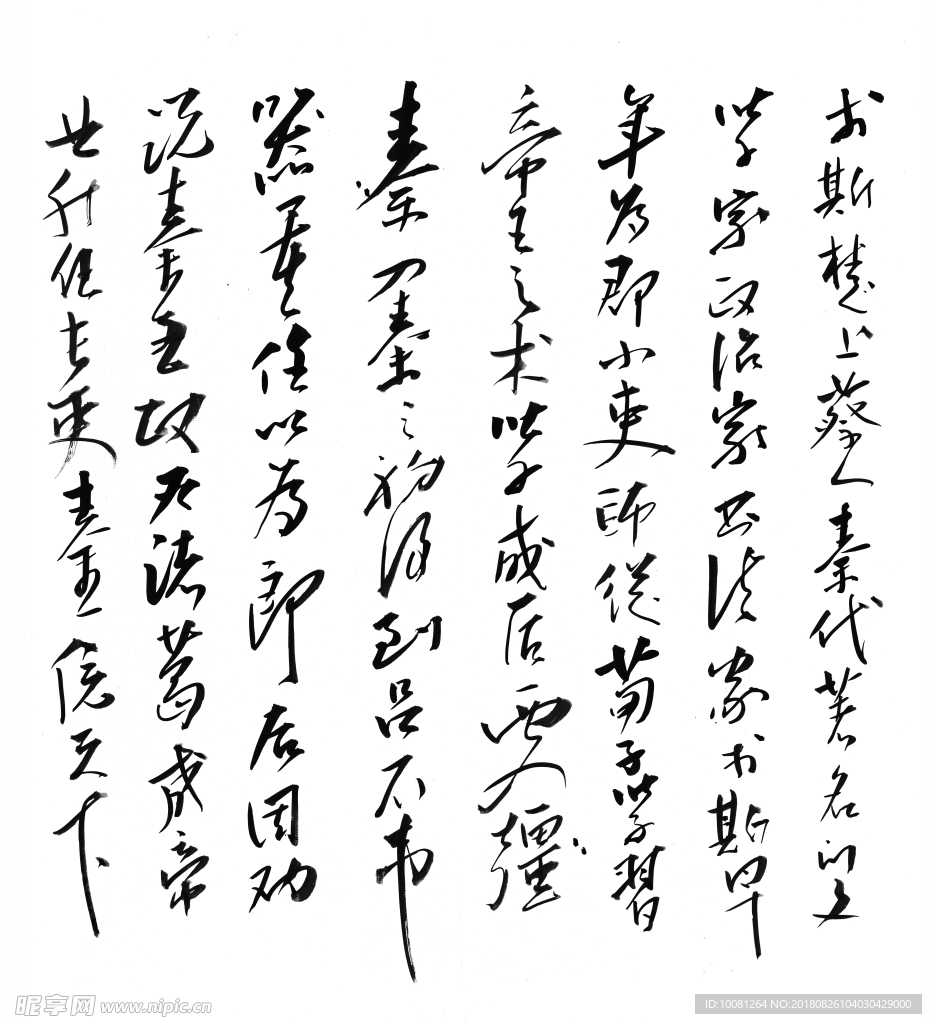 李斯楚上蔡人秦代著名的文
學家政治家书法家李斯早
年为郡小吏師從荀子學習
帝王之术學成后西入疆
秦秦之初得到吕不韦
器重任以为郎后因劝
说秦王政灭诸葛成帝
业升任长吏秦王天下
昵享网 www.nipic.cn
ID:10081264 NO:20180826104030429000